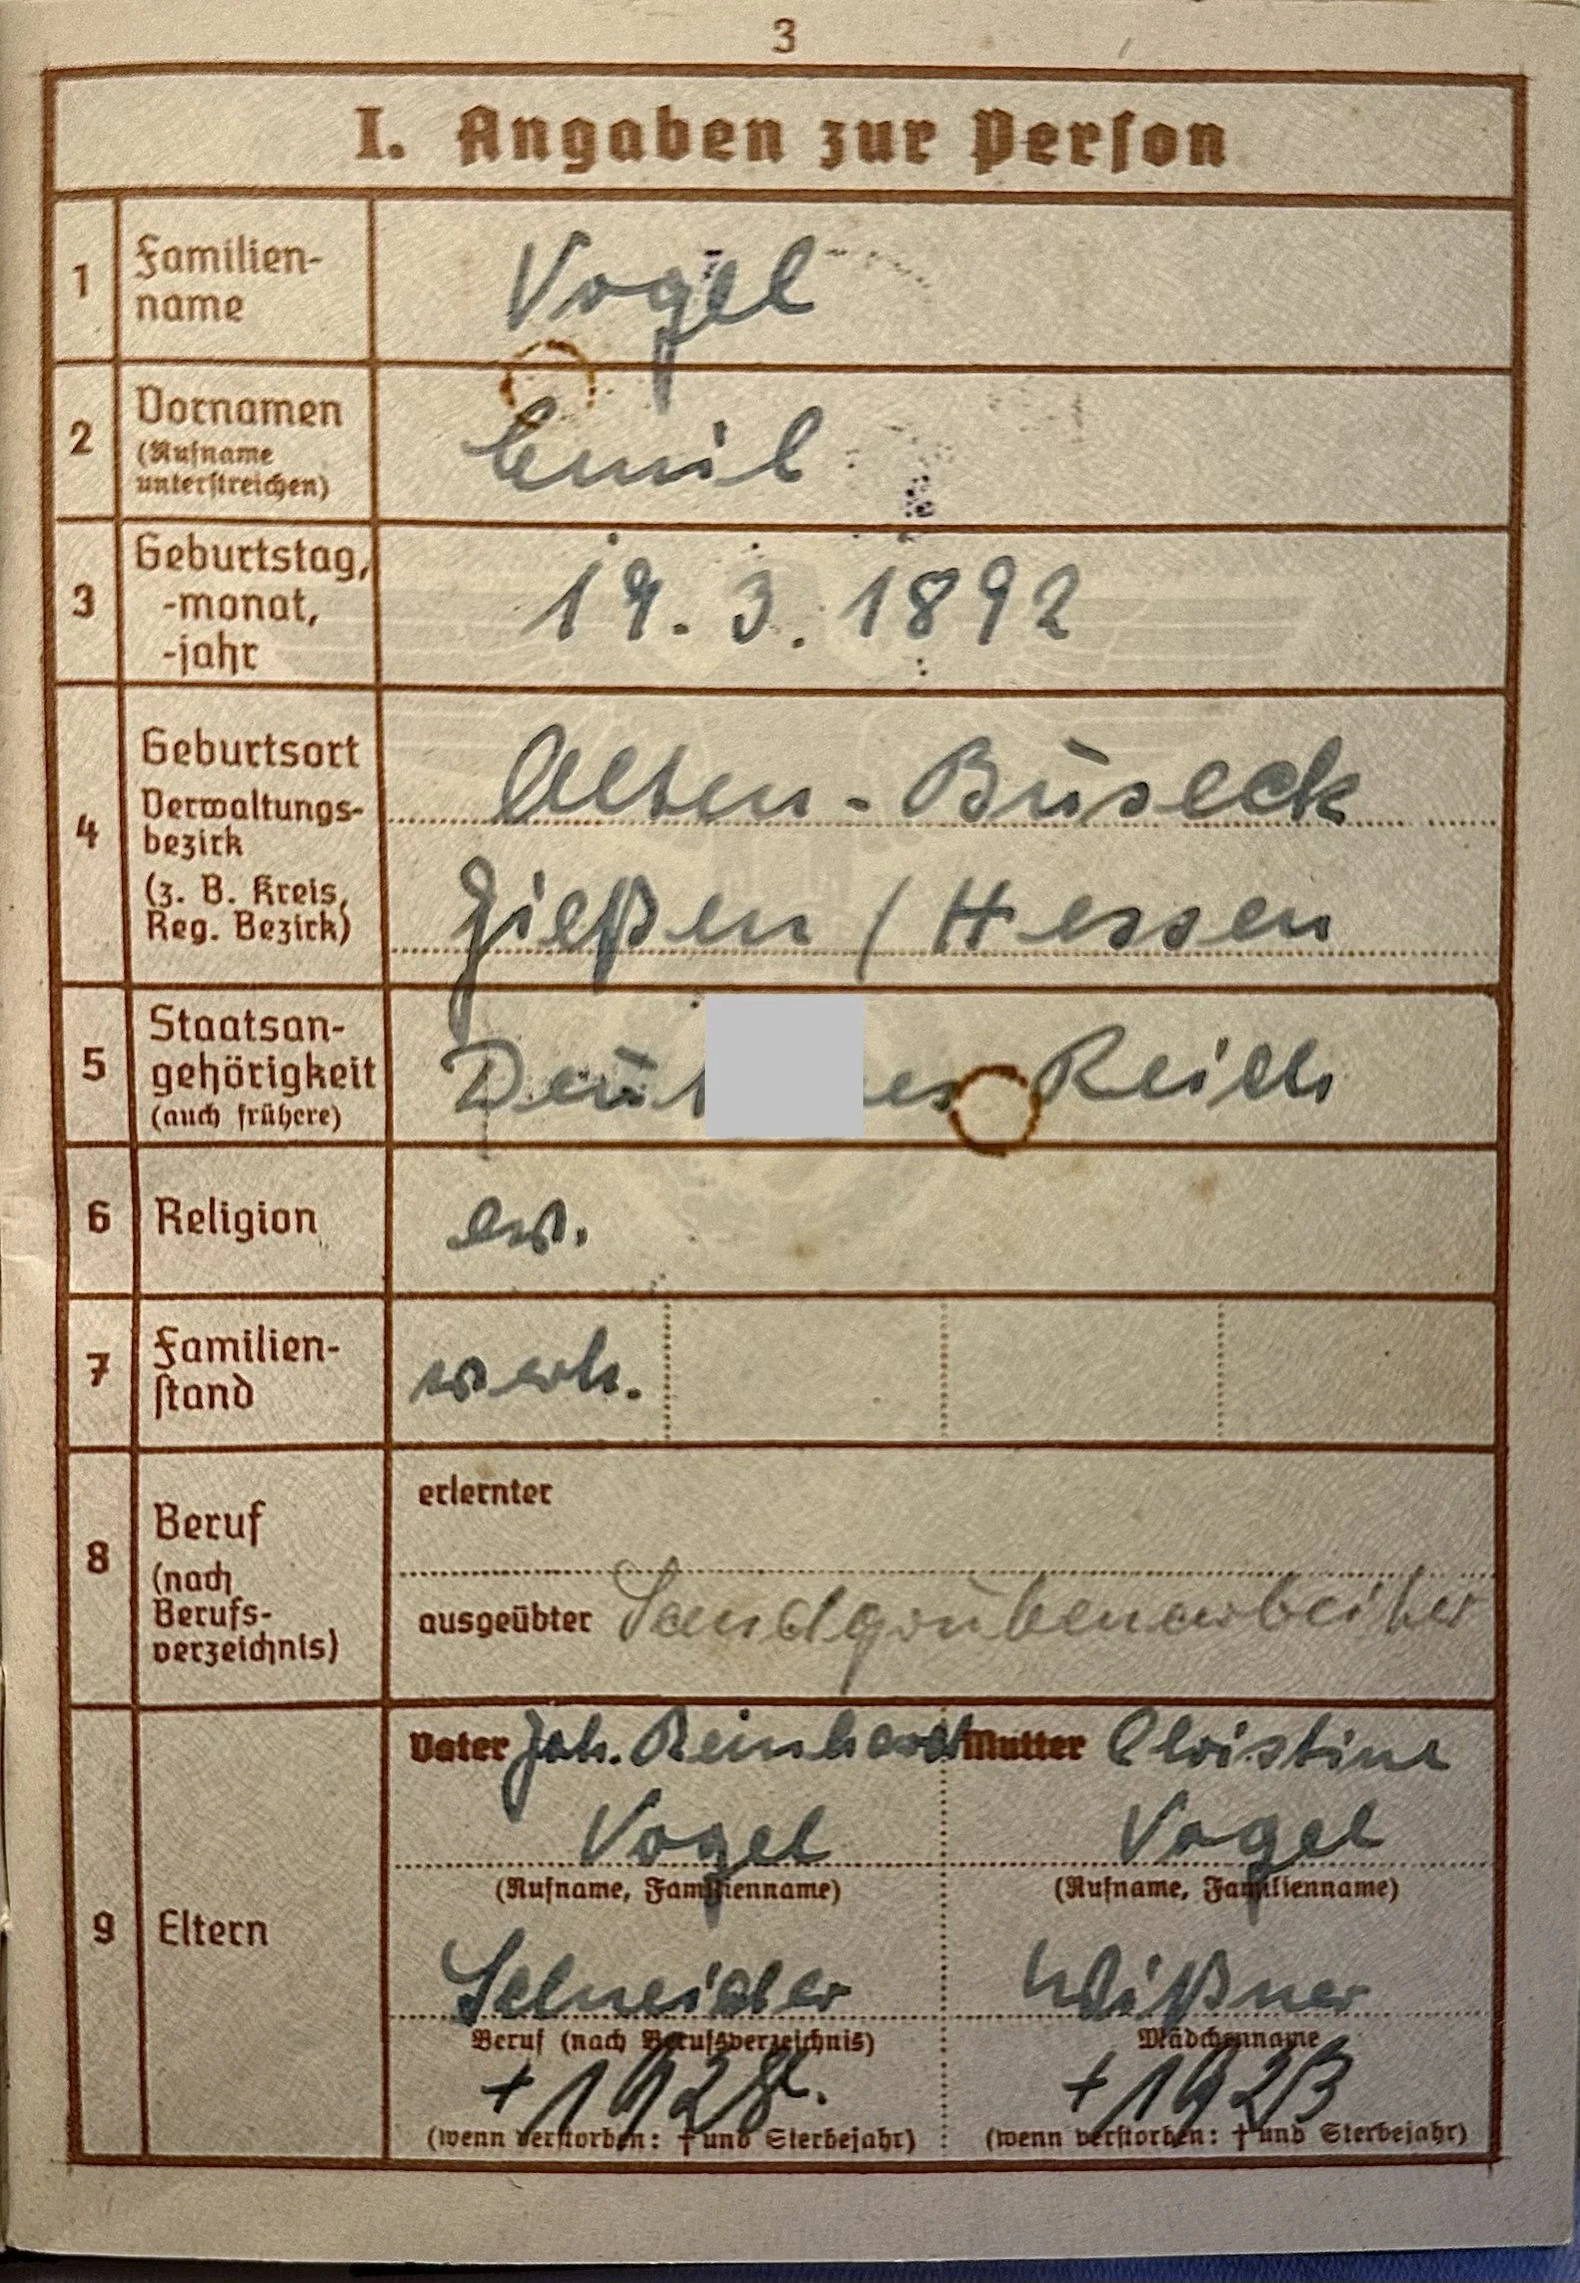 3
I. Angaben zur Person
1 Familien-
name
Vogel
2 Vornamen
(Rufname
unterstreichen)
Emil
3 Geburtstag,
-monat,
-jahr
19.3.1892
4 Geburtsort
Verwaltungs-
bezirk
(z. B. Kreis,
Reg. Bezirk)
Alten-Buseck
Gießen / Hessen
5 Staatsan-
gehörigkeit
(auch frühere)
Deut es Reich
6 Religion
ev.
7 Familien-
stand
verh.
8 Beruf
(nach
Berufs-
verzeichnis)
erlernter
ausgeübter Sandgrubenarbeiter
9 Eltern
Vater Joh. Reinhardt
Vogel
(Rufname, Familienname)
Schneider
Beruf (nach Berufsverzeichnis)
(wenn verstorben: † und Sterbejahr)
Mutter Christine
Vogel
(Rufname, Familienname)
Wißner
Mädchenname
+ 1923
(wenn verstorben: † und Sterbejahr)